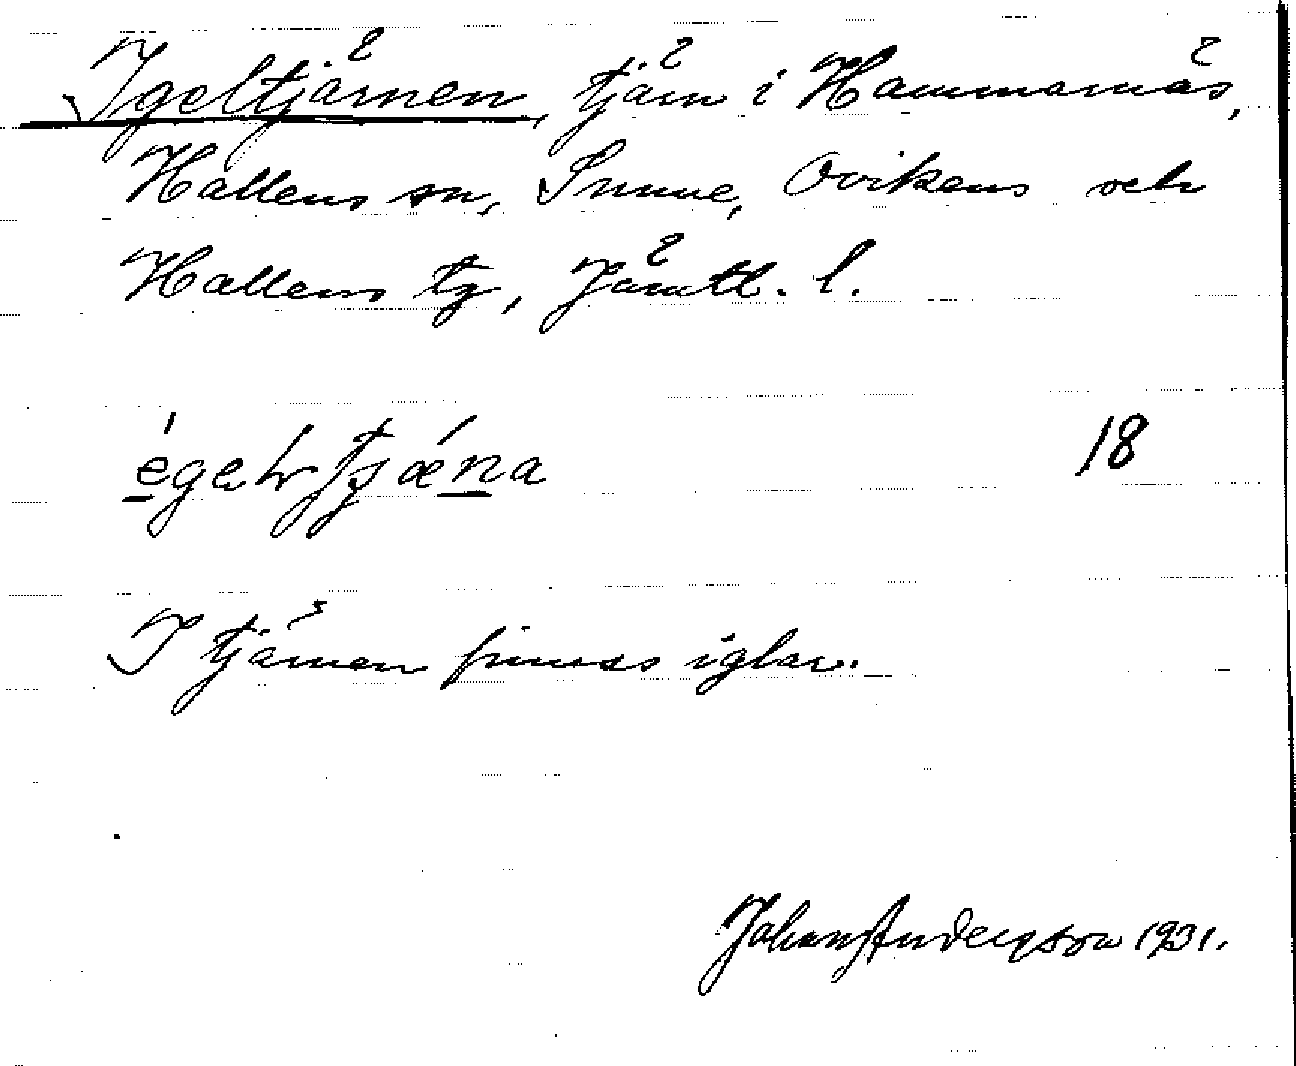 Igeltjärnen, tjärn i Hammarnäs,
Hallens sn, Sunne, Ovikens och
Hallens tg, Jämtl. l.
18
I tjärnen finnes iglar.
Johan Anderson 1931.